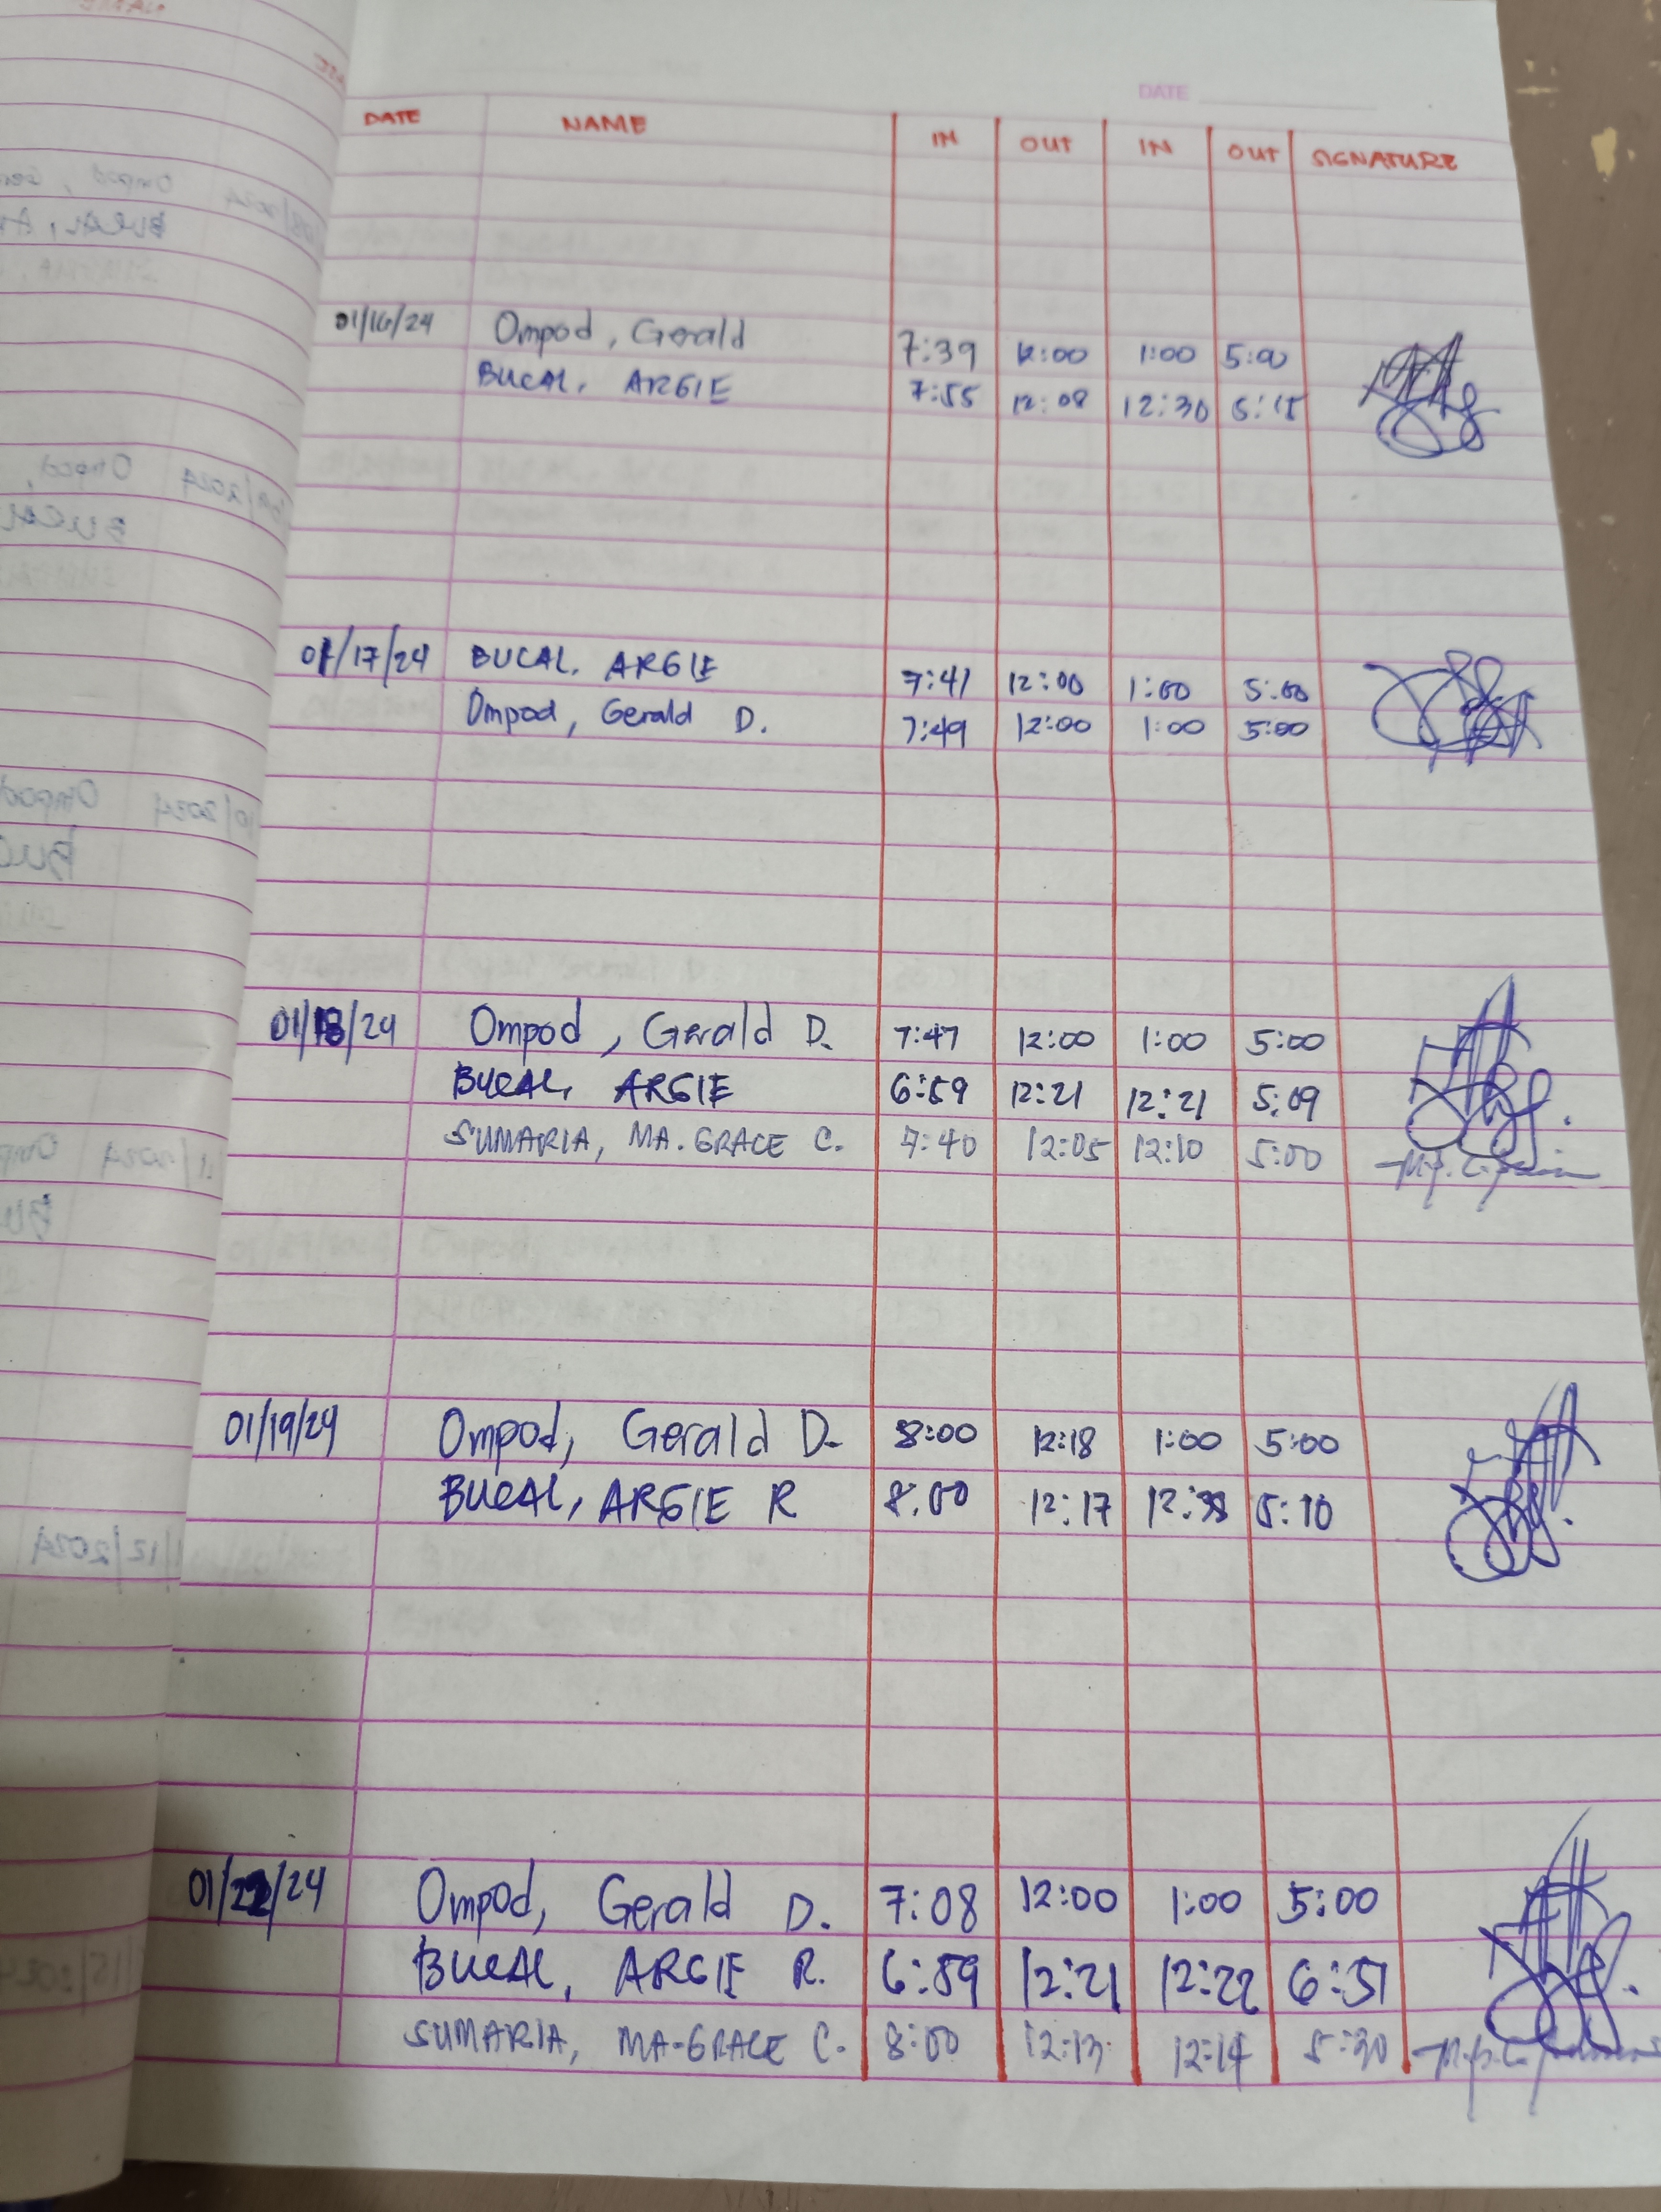 DATE
DATE NAME IN OUT IN OUT SIGNATURE
01/16/24 Ompod, Gerald 7:39 12:00 1:00 5:00
BUCAL, ARGIE 7:55 12:08 12:30 5:15
01/17/24 BUCAL, ARGIE 7:41 12:00 1:00 5:00
Ompod, Gerald D. 7:49 12:00 1:00 5:00
01/18/24 Ompod, Gerald D. 7:47 12:00 1:00 5:00
BUCAL, ARGIE 6:59 12:21 12:21 5:09
SUMARIA, MA. GRACE C. 7:40 12:05 12:10 5:00
01/19/24 Ompod, Gerald D. 8:00 12:18 1:00 5:00
BUCAL, ARGIE R 8:00 12:17 5:10
01/22/24 Ompod, Gerald D. 7:08 12:00 1:00 5:00
BUCAL, ARGIE R. 6:59 12:21 12:22 6:51
SUMARIA, MA-GRACE C. 8:00 12:13 12:14 5:30